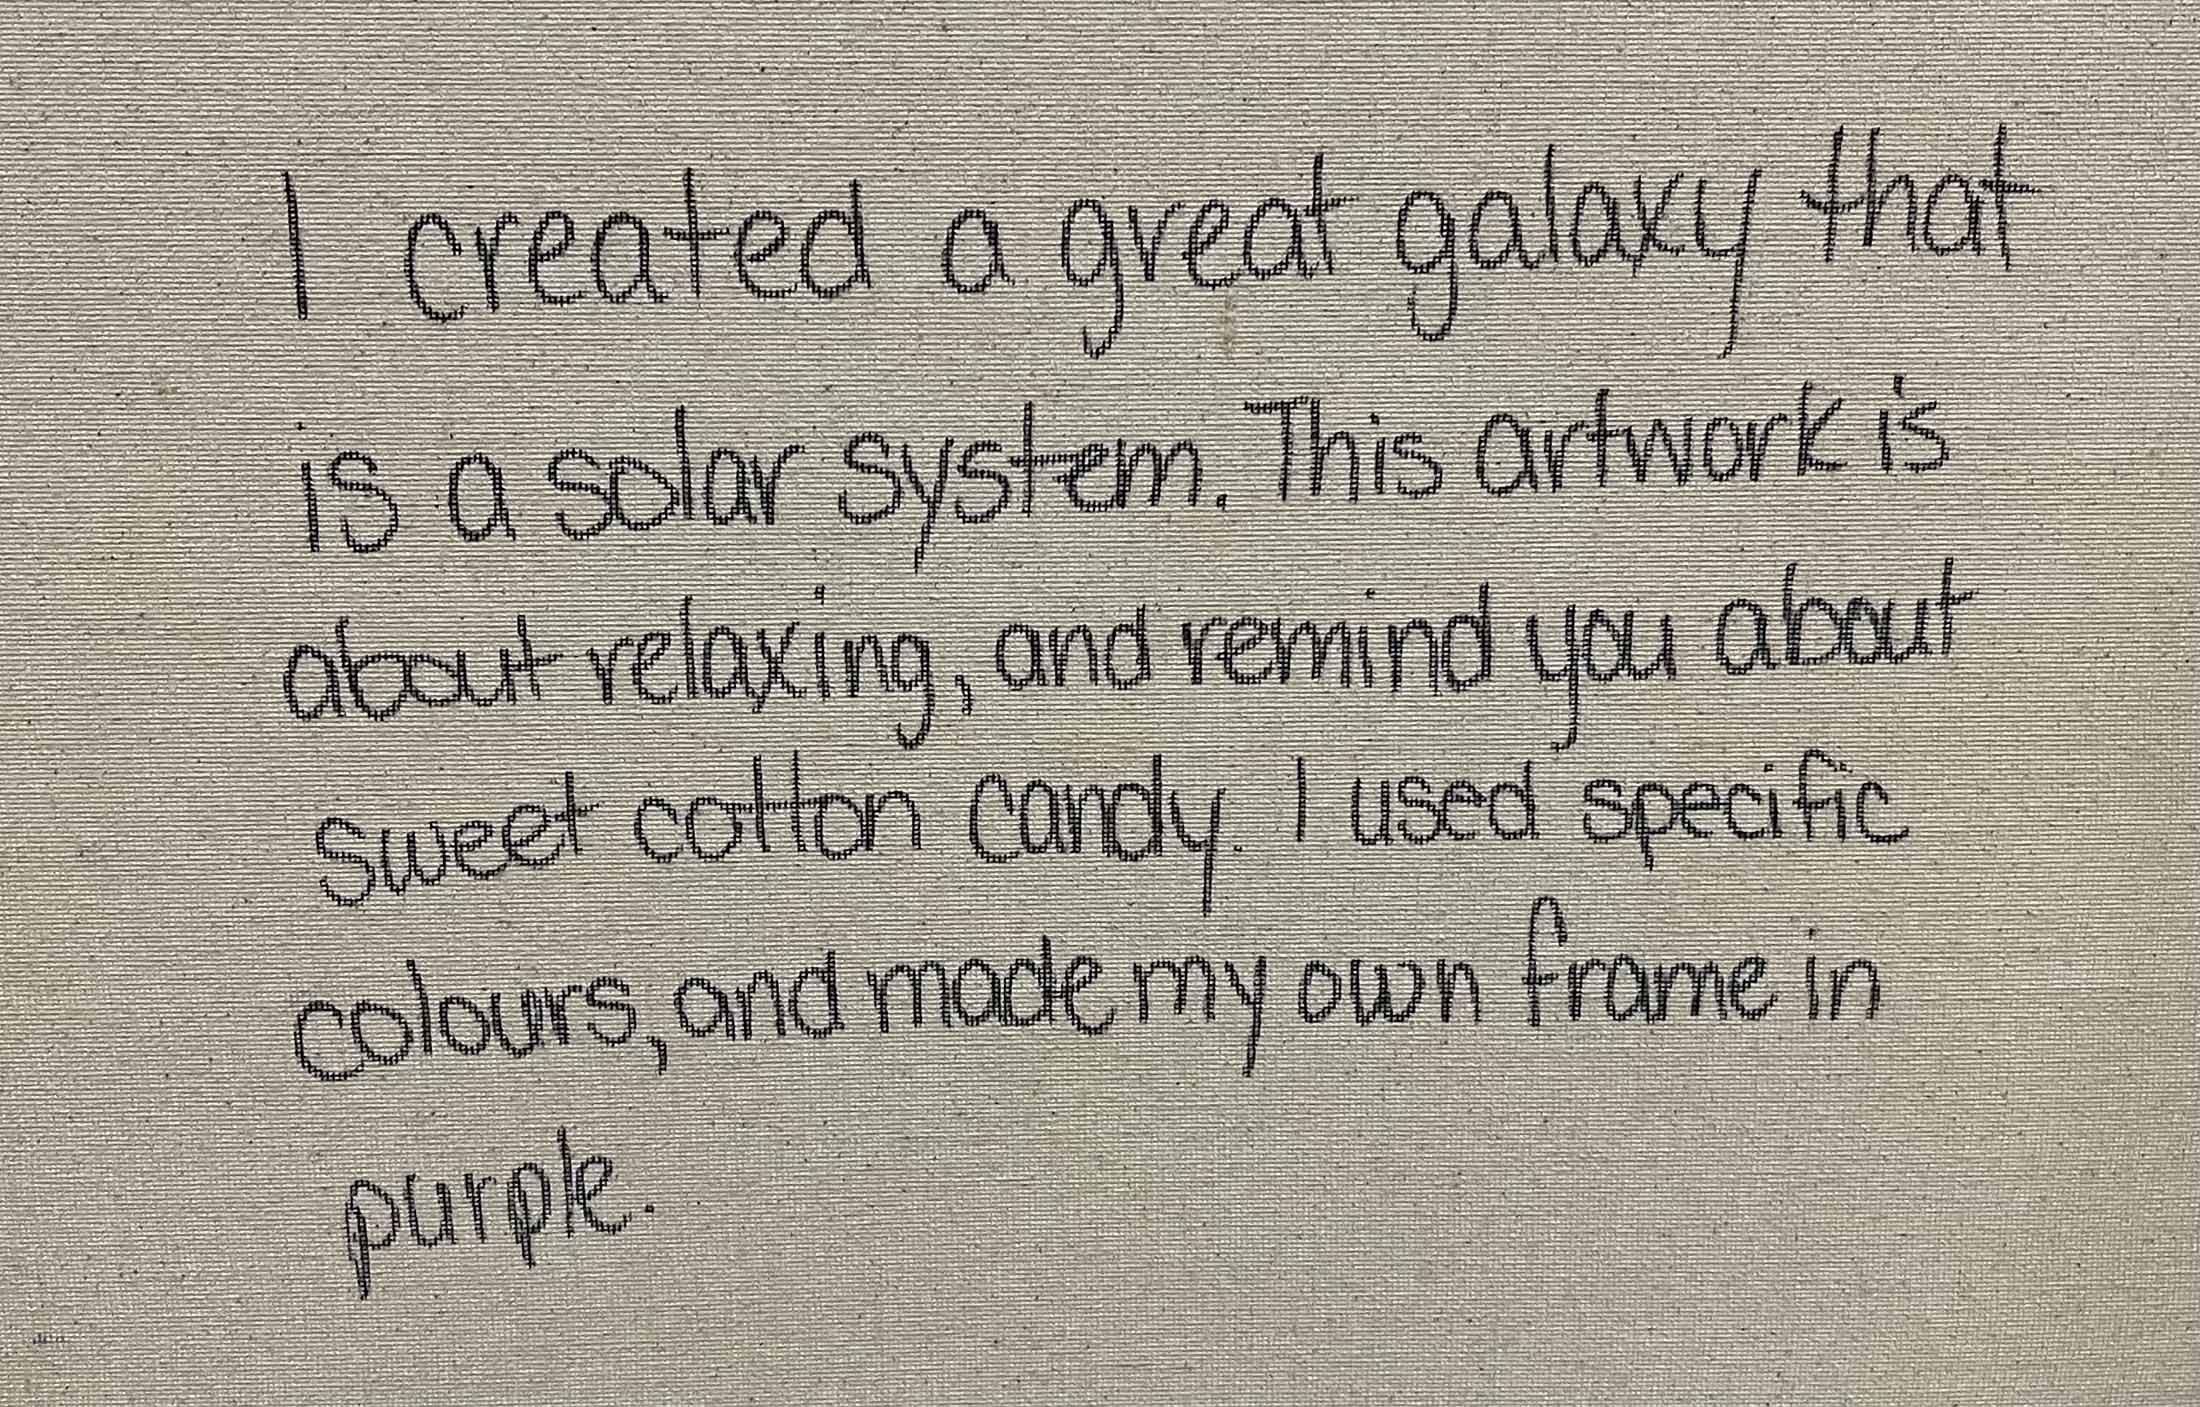 I created a great galaxy that
is a solar system. This artwork is
about relaxing, and remind you about
sweet cotton candy. I used specific
colours, and made my own frame in
purple.